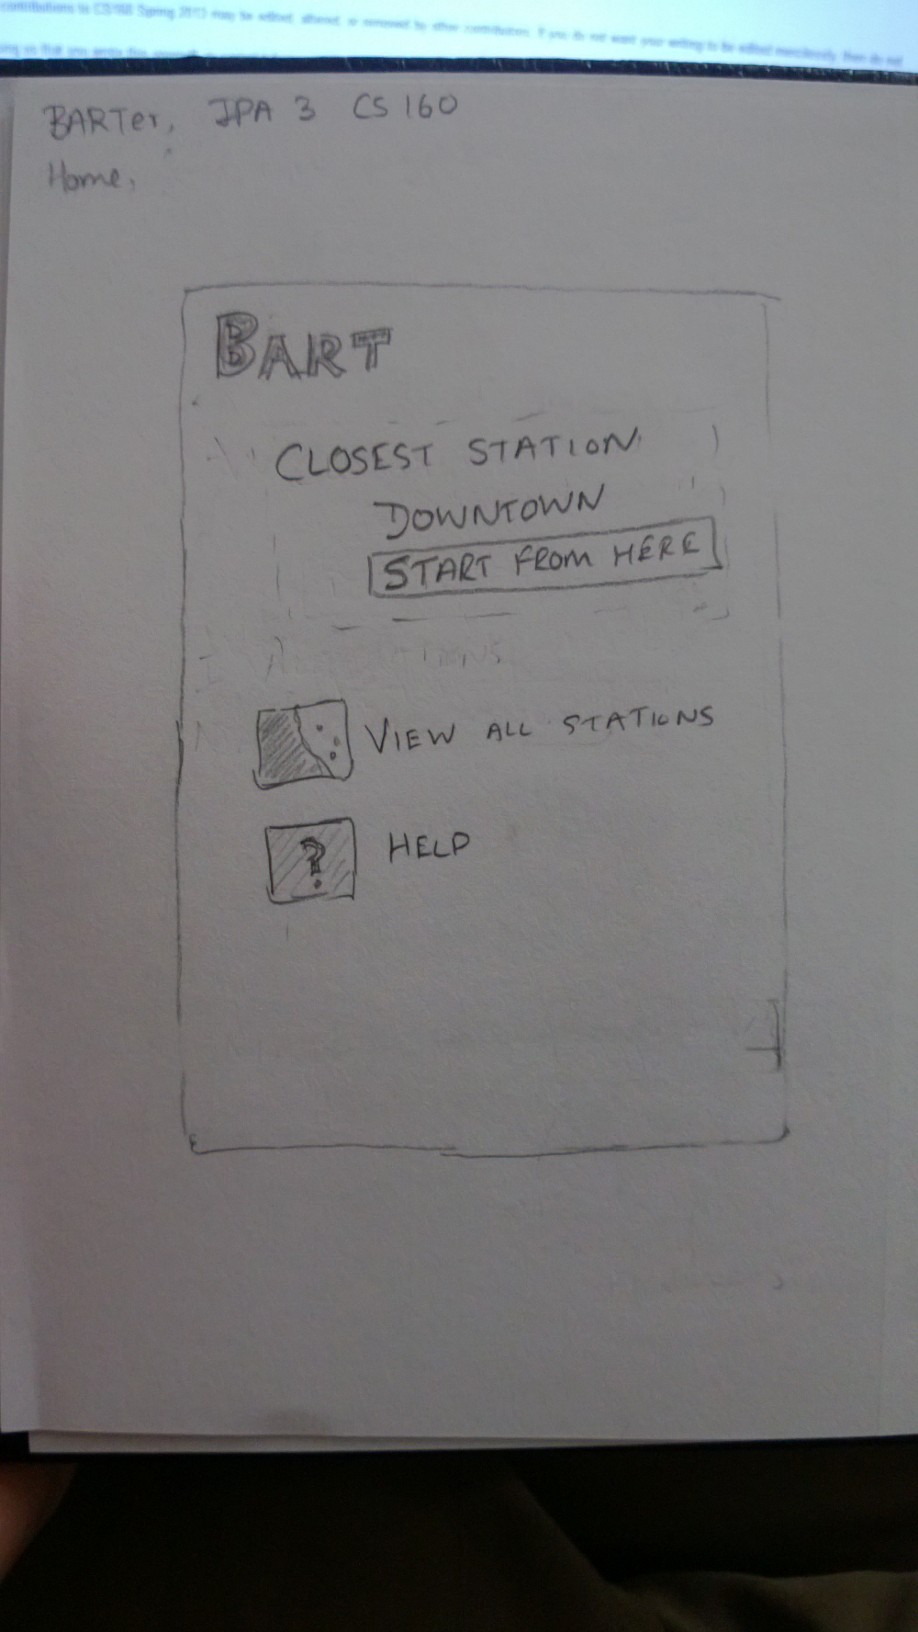 contributions to CS160 Spring 2013 may be edited, altered, or removed by other contributors. If you do not want your writing to be edited mercilessly, then do not
BARTer, IPA 3 CS 160
Home.
BART
CLOSEST STATION
DOWNTOWN
START FROM HERE
VIEW ALL STATIONS
?
HELP